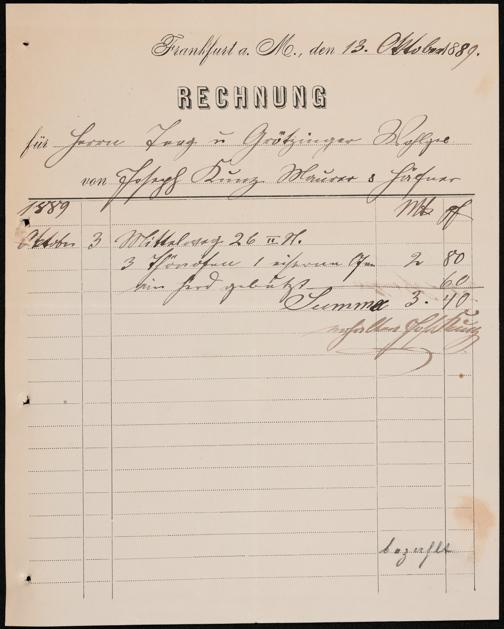 Frankfurt a. M., den 13. Oktober 1889.
RECHNUNG
für Herrn Trag u Grötzinger
von Joseph Kunz Maurer & Häfner
1889 Mk pf
Oktober 3 Mittelweg 26 II St.
3 Thonöfen 1 eiserne 2 80
ein Herd geputzt 60
Summa 3. 40
erhalten Jos Kunz
bezahlt